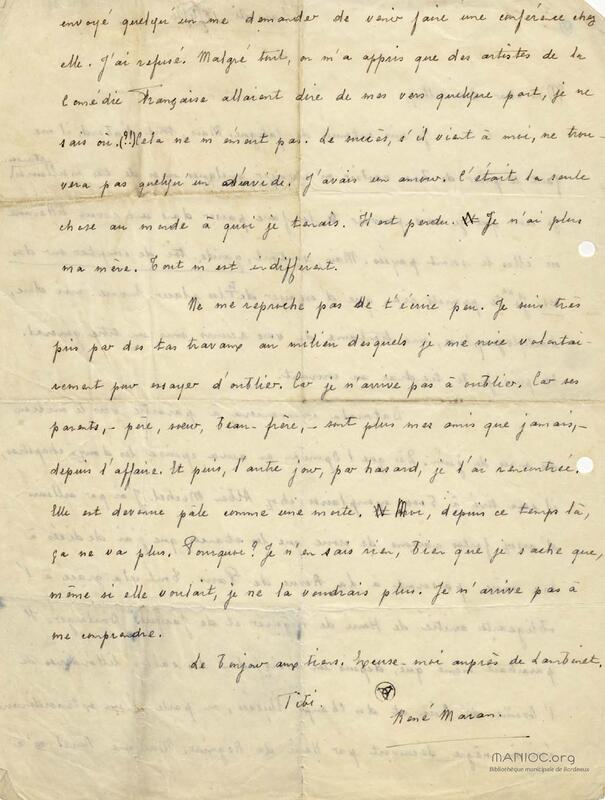 envoyé quelqu'un me demander de venir faire une conférence chez
elle. J'ai refusé. Malgré tout, on m'a appris que des artistes de la
Comédie Française allaient dire de mes vers quelque part, je ne
sais où. (?!) Cela ne m'émeut pas. Le succès, s'il vient à moi, ne trou-
vera pas quelqu'un d'avide. J'avais un amour. C'était la seule
chose au monde à quoi je tenais. Il est perdu. Je n'ai plus
ma mère. Tout m'est indifférent.
Ne me reproche pas de t'écrire peu. Je suis très
pris par des tas travaux au milieu desquels je me noie volontai-
rement pour essayer d'oublier. Car je n'arrive pas à oublier. Car ses
parents, - père, sœur, beau-frère, - sont plus mes amis que jamais, -
depuis l'affaire. Et puis, l'autre jour, par hasard, je l'ai rencontrée.
Elle est devenue pâle comme une morte. Moi, depuis ce temps là,
ça ne va plus. Pourquoi? Je n'en sais rien, bien que je sache que,
même si elle voulait, je ne la voudrais plus. Je n'arrive pas à
me comprendre.
Le bonjour aux tiens. Excuse-moi auprès de
Tibi.
René Maran.
MANIOC.org
Bibliothèque municipale de Bordeaux